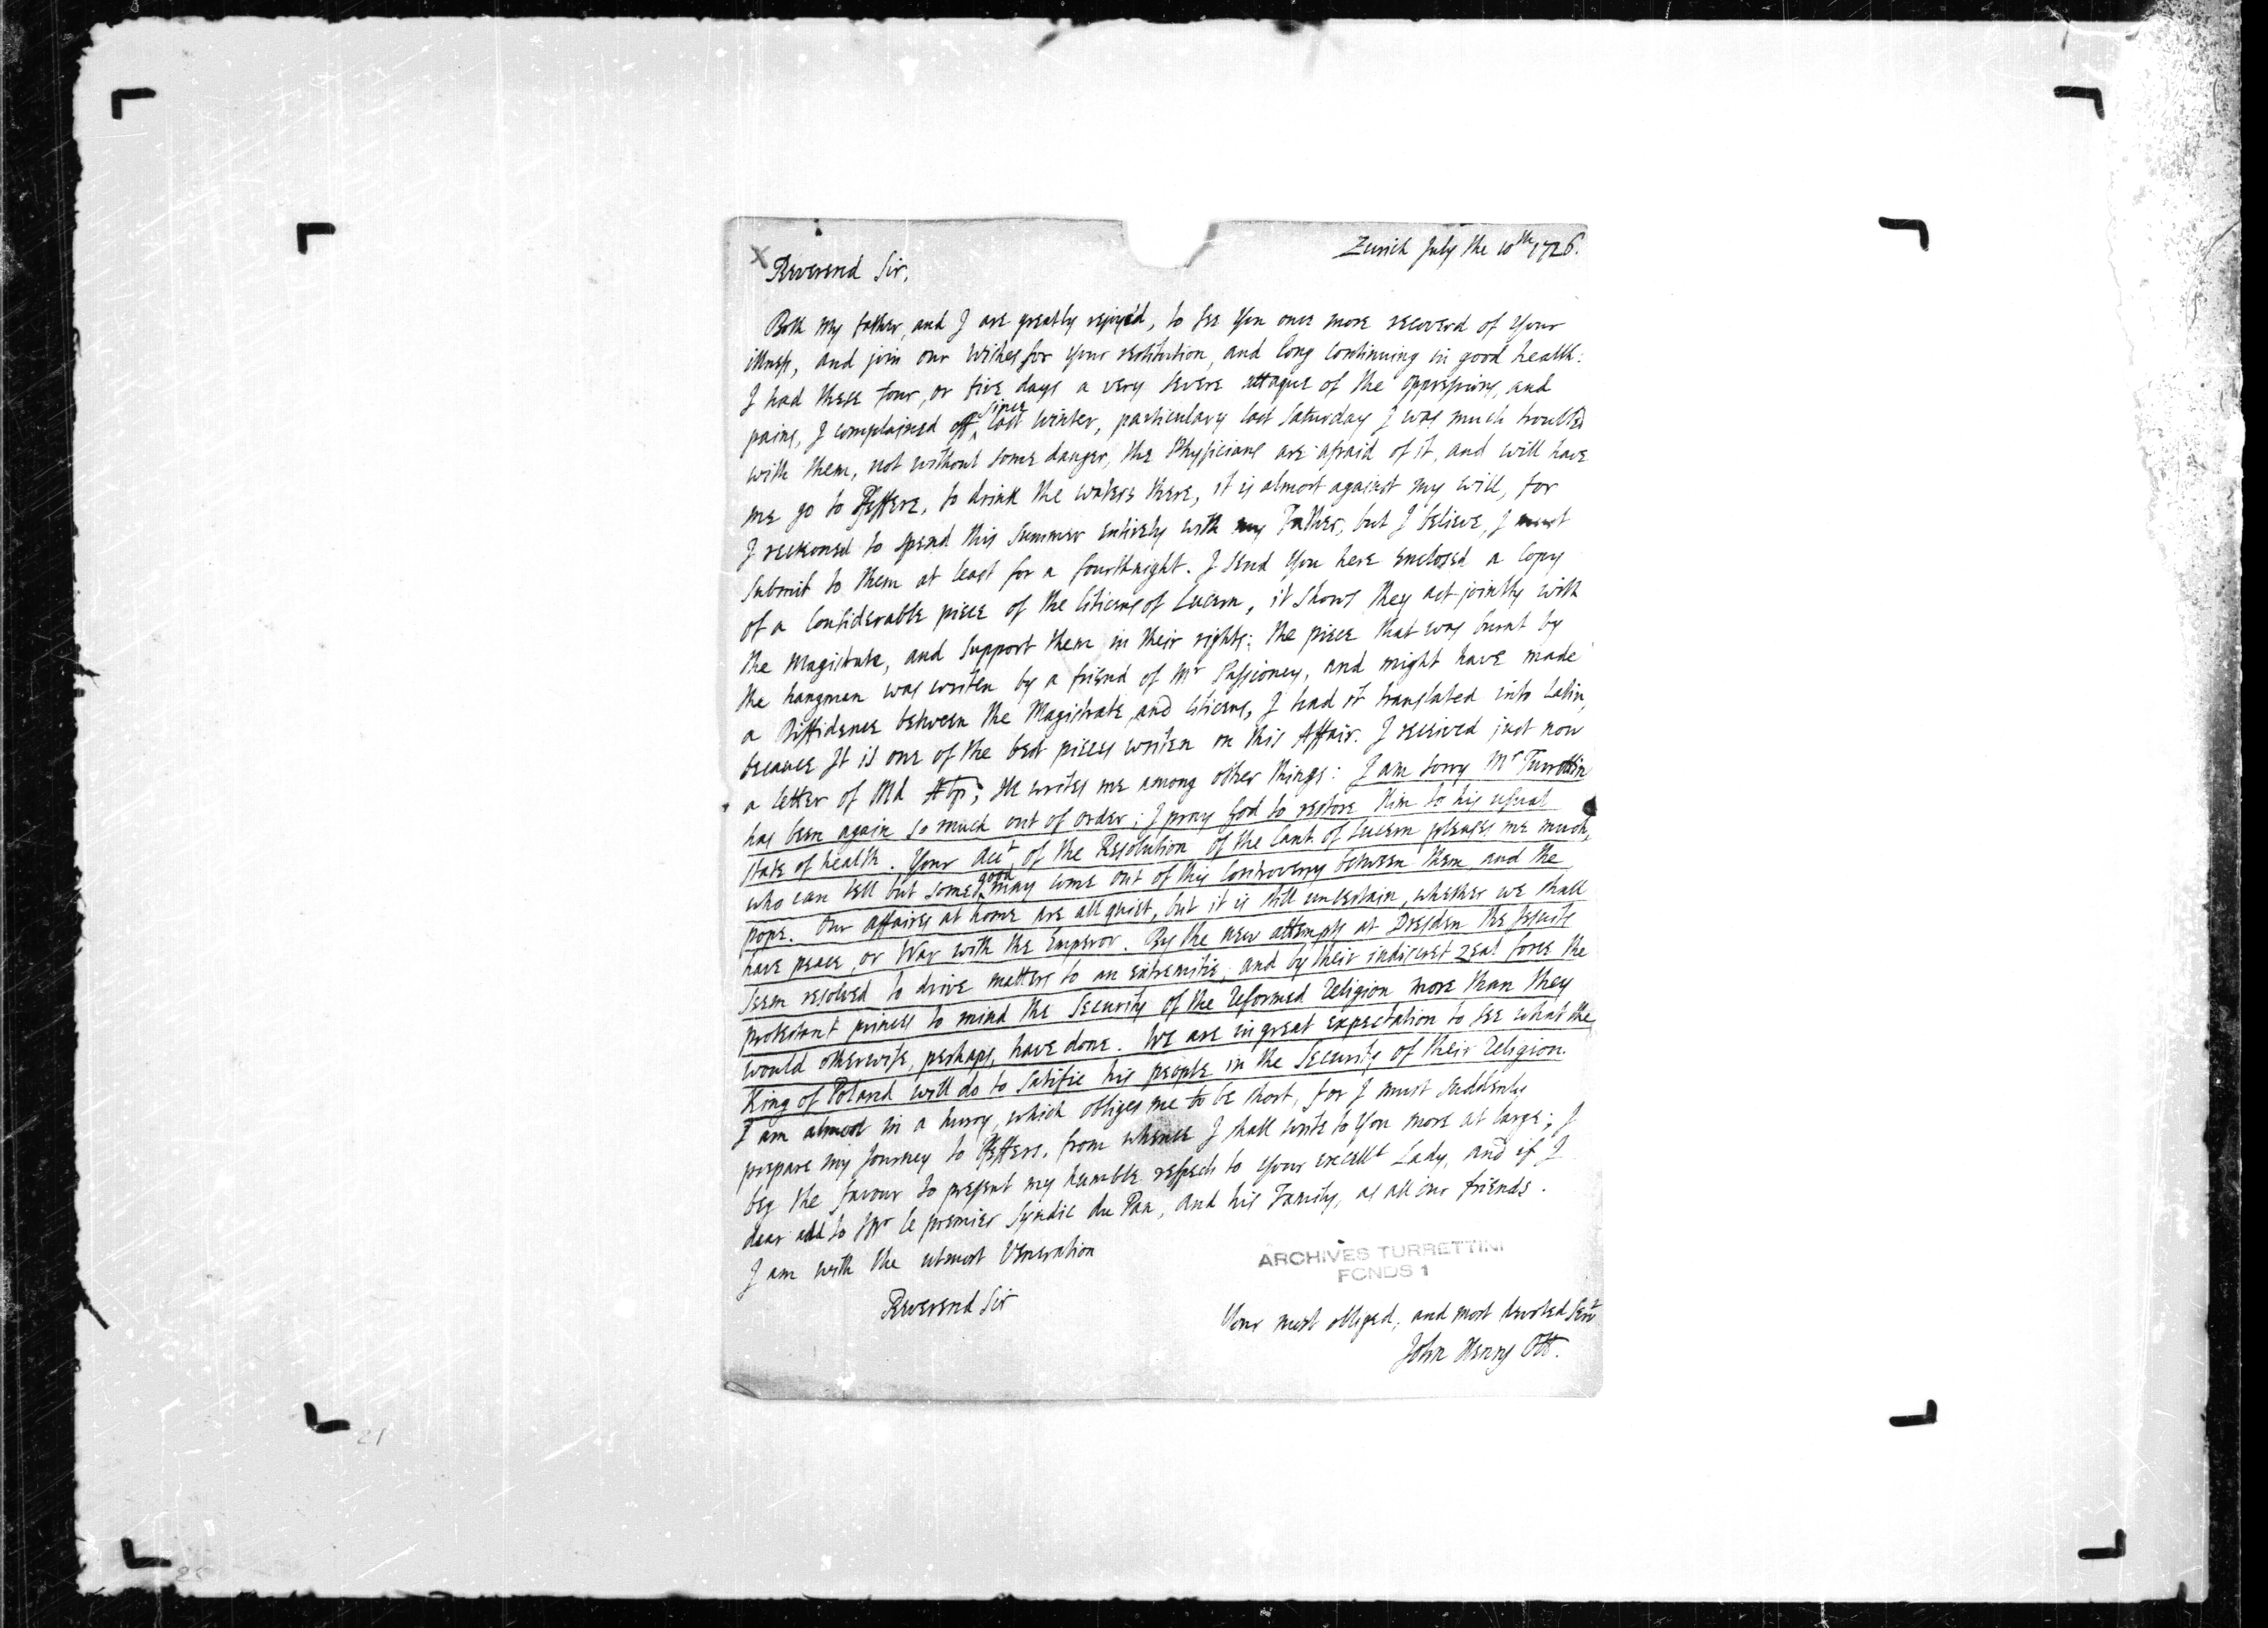 Zurich July the 10th 1726.
Reverend Sir,
Both my father, and I are greatly rejoyc'd, to see You once more recoverd of Your
illness, and join our Wishes for Your restitution, and long continuing in good health:
I had these four, or five days a very severe attaque of the oppressions, and
pains, I complained off since last winter, particulary last Saturday I was much troubled
with them, not without some danger, the Physicians are afraid of it, and will have
me go to Pfeffers, to drink the waters there, it is almost against my will, for
I reckoned to spend this summer entirely with my Father, but I believe, I must
submit to them at least for a fourthnight. I send You here enclosed a Copy
of a Considerable piece of the Citicens of Lucern, it shows they act jointly with
the Magistrate, and support them in their rights; the piece that was burnt by
the hangman was writen by a friend of Mr Passioney, and might have made
a Diffidence between the Magistrate, and Citicens, I had it translated into Latin,
because It is one of the best pieces writen on this Affair. I received just now
a letter of Mr; He writes me among other things: I am sorry Mr Turrettin
has been again so much out of order; I pray God to restore Him to his usual
state of health. Your Acct of the Resolution of the Cant. of Lucern pleases me much,
who can tell but some good may come out of this Controversy between them, and the
pope. Our affaires at home are all quiet, but it is still uncertain, whether we shall
have peace, or War with the Emperor. By the new attempts at Dresden the Jesuits
seem resolved to drive matters to an extremitie, and by their indiscret zeal force the
protestant princes to mind the Security of the reformed religion more than they
would otherwise, perhaps, have done. We are in great expectation to see what the
King of Poland will do to satisfie his people in the Security of their religion.
I am almost in a hurry, which obliges me to be short, for I must suddenly
prepare my Journey to Pfeffers, from whence I shall write to You more at large; I
beg the favour to present my humble respects to Your excellt Lady, and if I
dear add to Mr le premier Syndic du Pan, and his Family, as all our friends.
I am with the utmost Veneration
Reverend Sir
ARCHIVES TURRETTINI
FONDS 1
Your most obliged, and most devoted Servt
John Henry Ott.